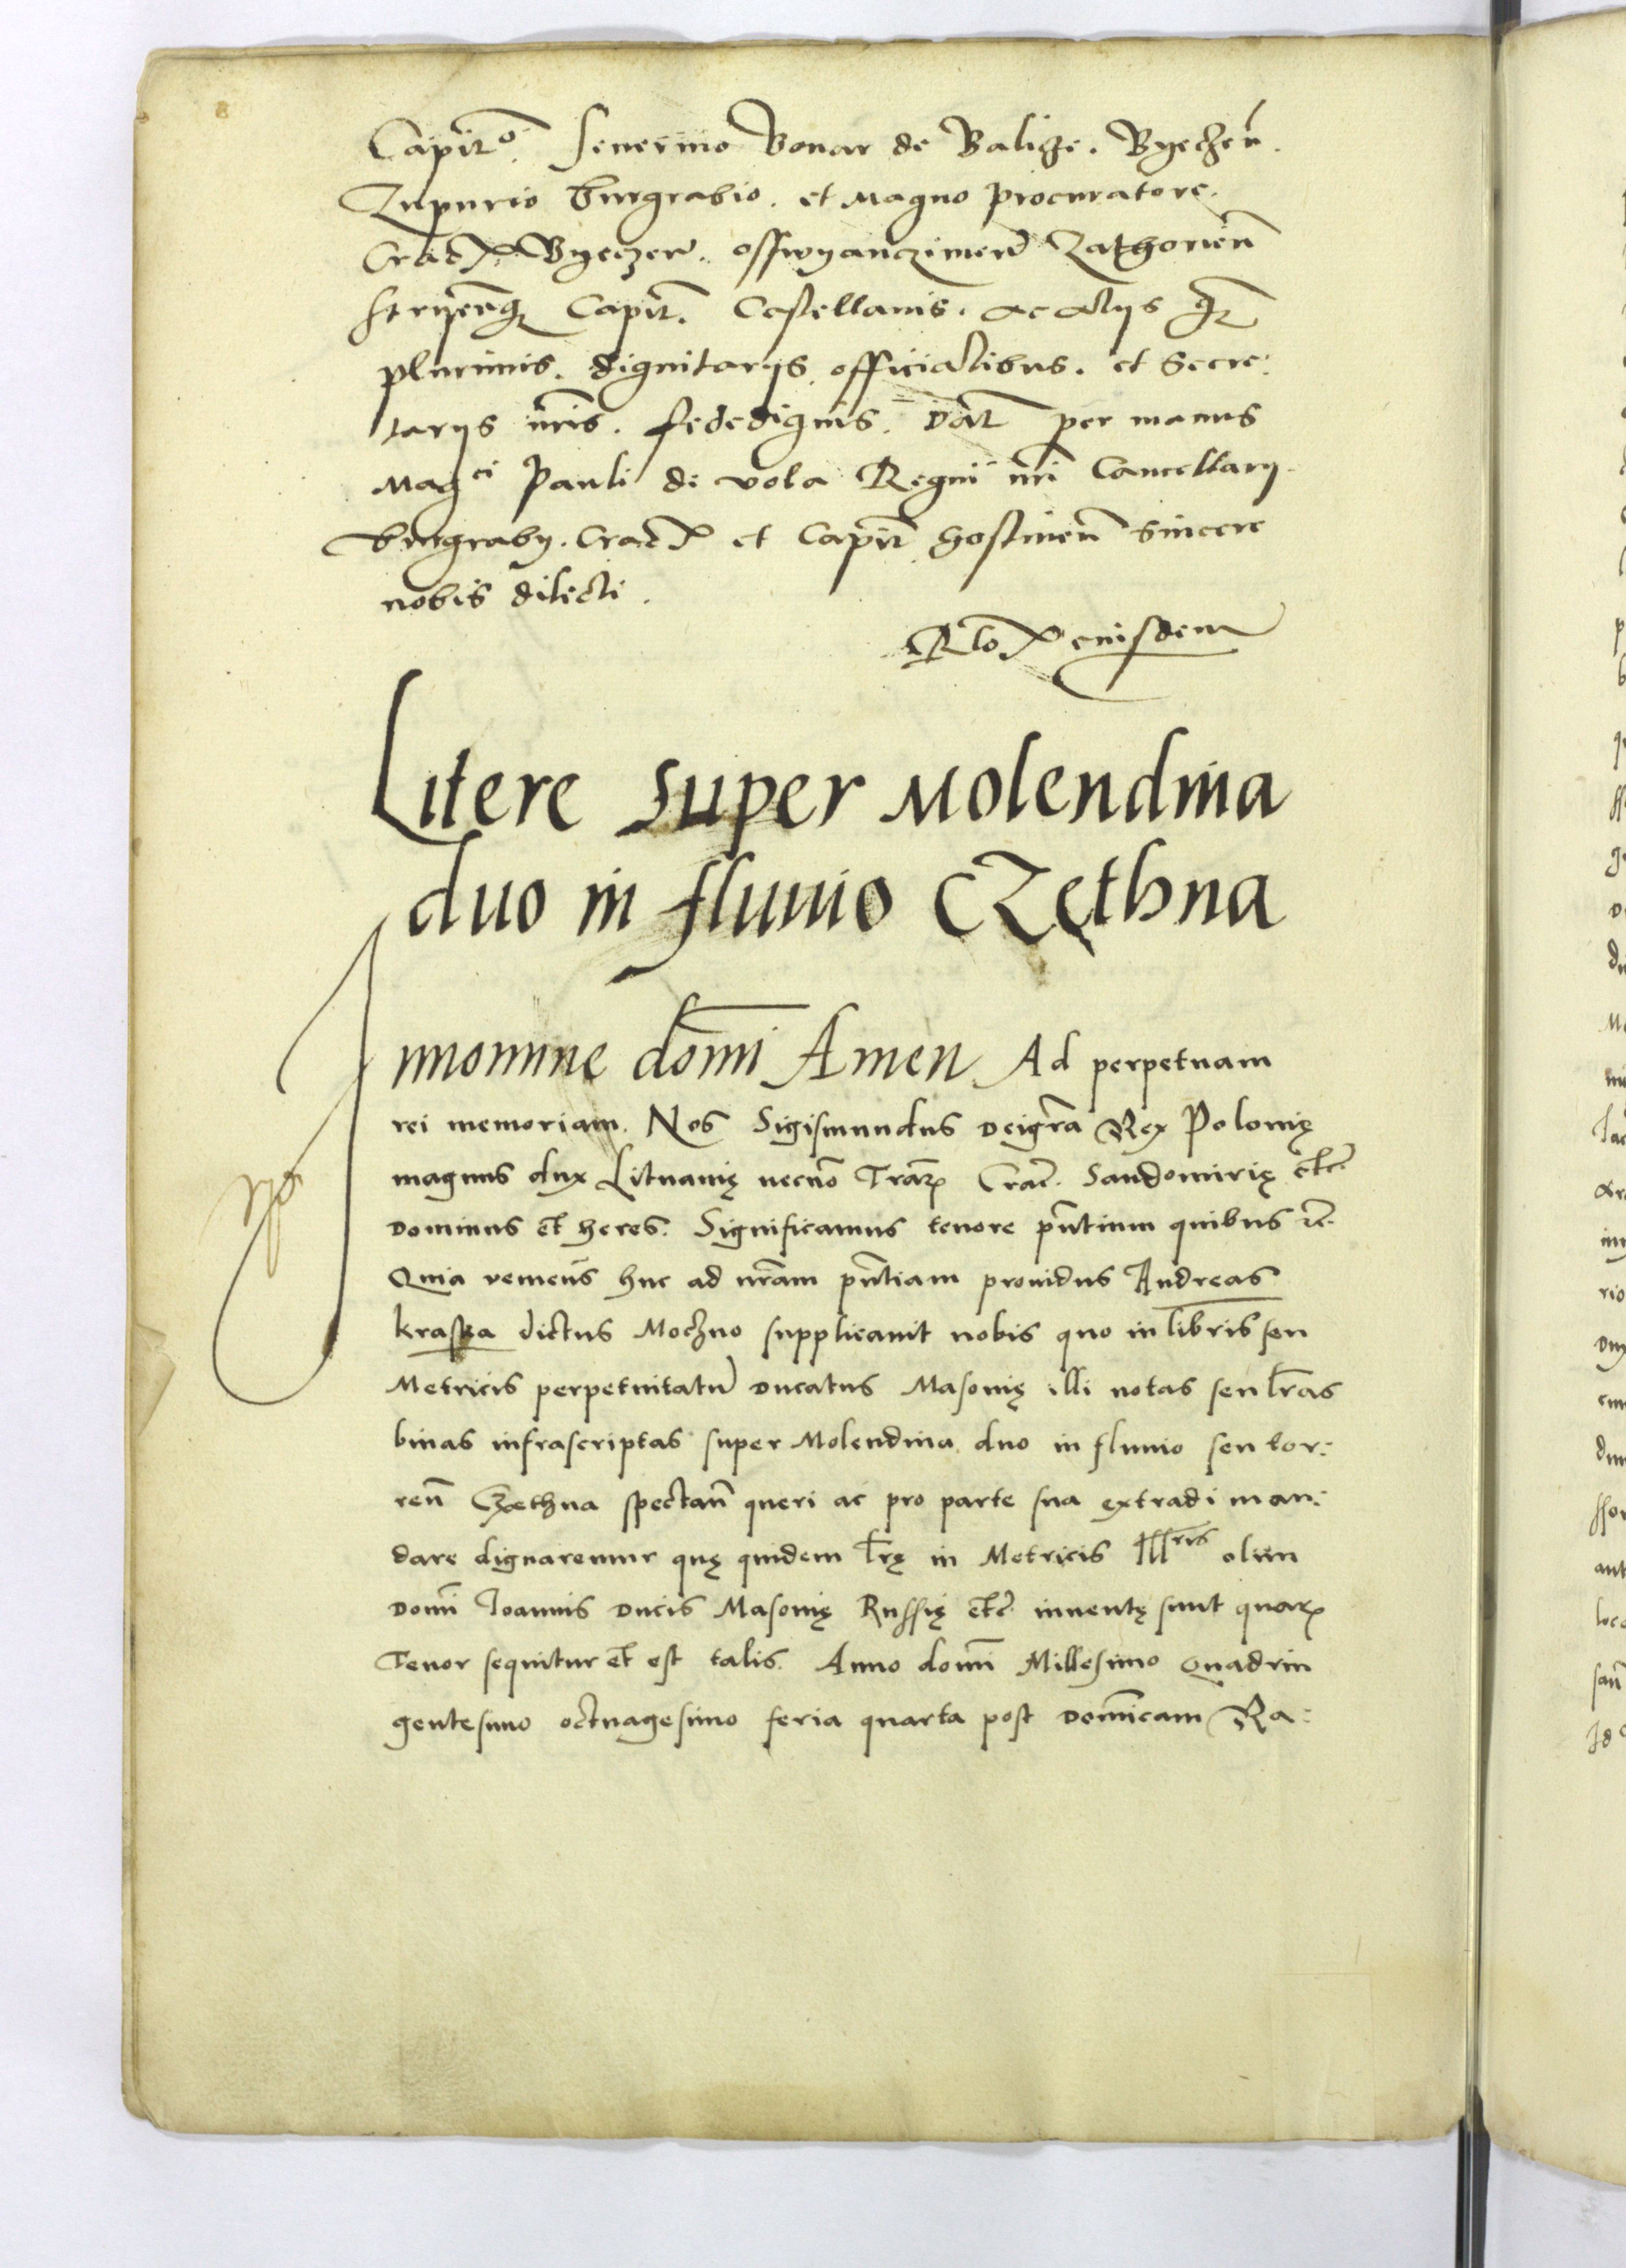 Capit͠o. Seuerino Bonar de Balicze. Byechen̄.
Zupario burgrabio. et Magno procuratore.
Crac̄ Byeczen̄. osswyanczimen̄ Zathorien̄
strijen̄q; Capit̄. Castellanis. ac alijs q̄
plurimis. dignitarijs officialibus. et Secre:
tarijs nr̄is. fidedignis. Dat̄ per manus
Mag^ci Pauli de vola Regni nr̄i Cancellarij
burgrabij. Crac̄ et Capit̄ gostinen̄ Sincere
nobis dilecti.
Rl̄o eiusdem
Litere super Molendina
duo in fluuio CZęthna
Innomine dom̄i Amen Ad perpetuam
rei memoriam. Nos Sigismundus deigr̄a Rex Polonię
magnus dux Lituanię necnō Trarꝝ Crac̄. Sandomirię etc̄.
Dominus et heres. Significamus tenore pn̄tium quibus ꝛc̄.
Quia veniens huc ad nr̄am pn̄tiam prouidus Andreas
kraska dictus Moczno supplicauit nobis quo in libris seu
Metricis perpetuitatū ducatus Masouię illi notas seu lr̄as
binas infrascriptas super Molendina duo in fluuio seu tor:
ren̄ Czethna spectan̄ queri ac pro parte sua extradi man:
dare dignaremur quę quidem lr̄ę in Metricis Ill^ris olim
domī Joannis ducis Masouię Russię etc̄ inuentę sunt quarꝝ
Tenor sequitur et est talis. Anno domī Millesimo Quadrin
gentesimo octuagesimo feria quarta post dom̄icam Ra: